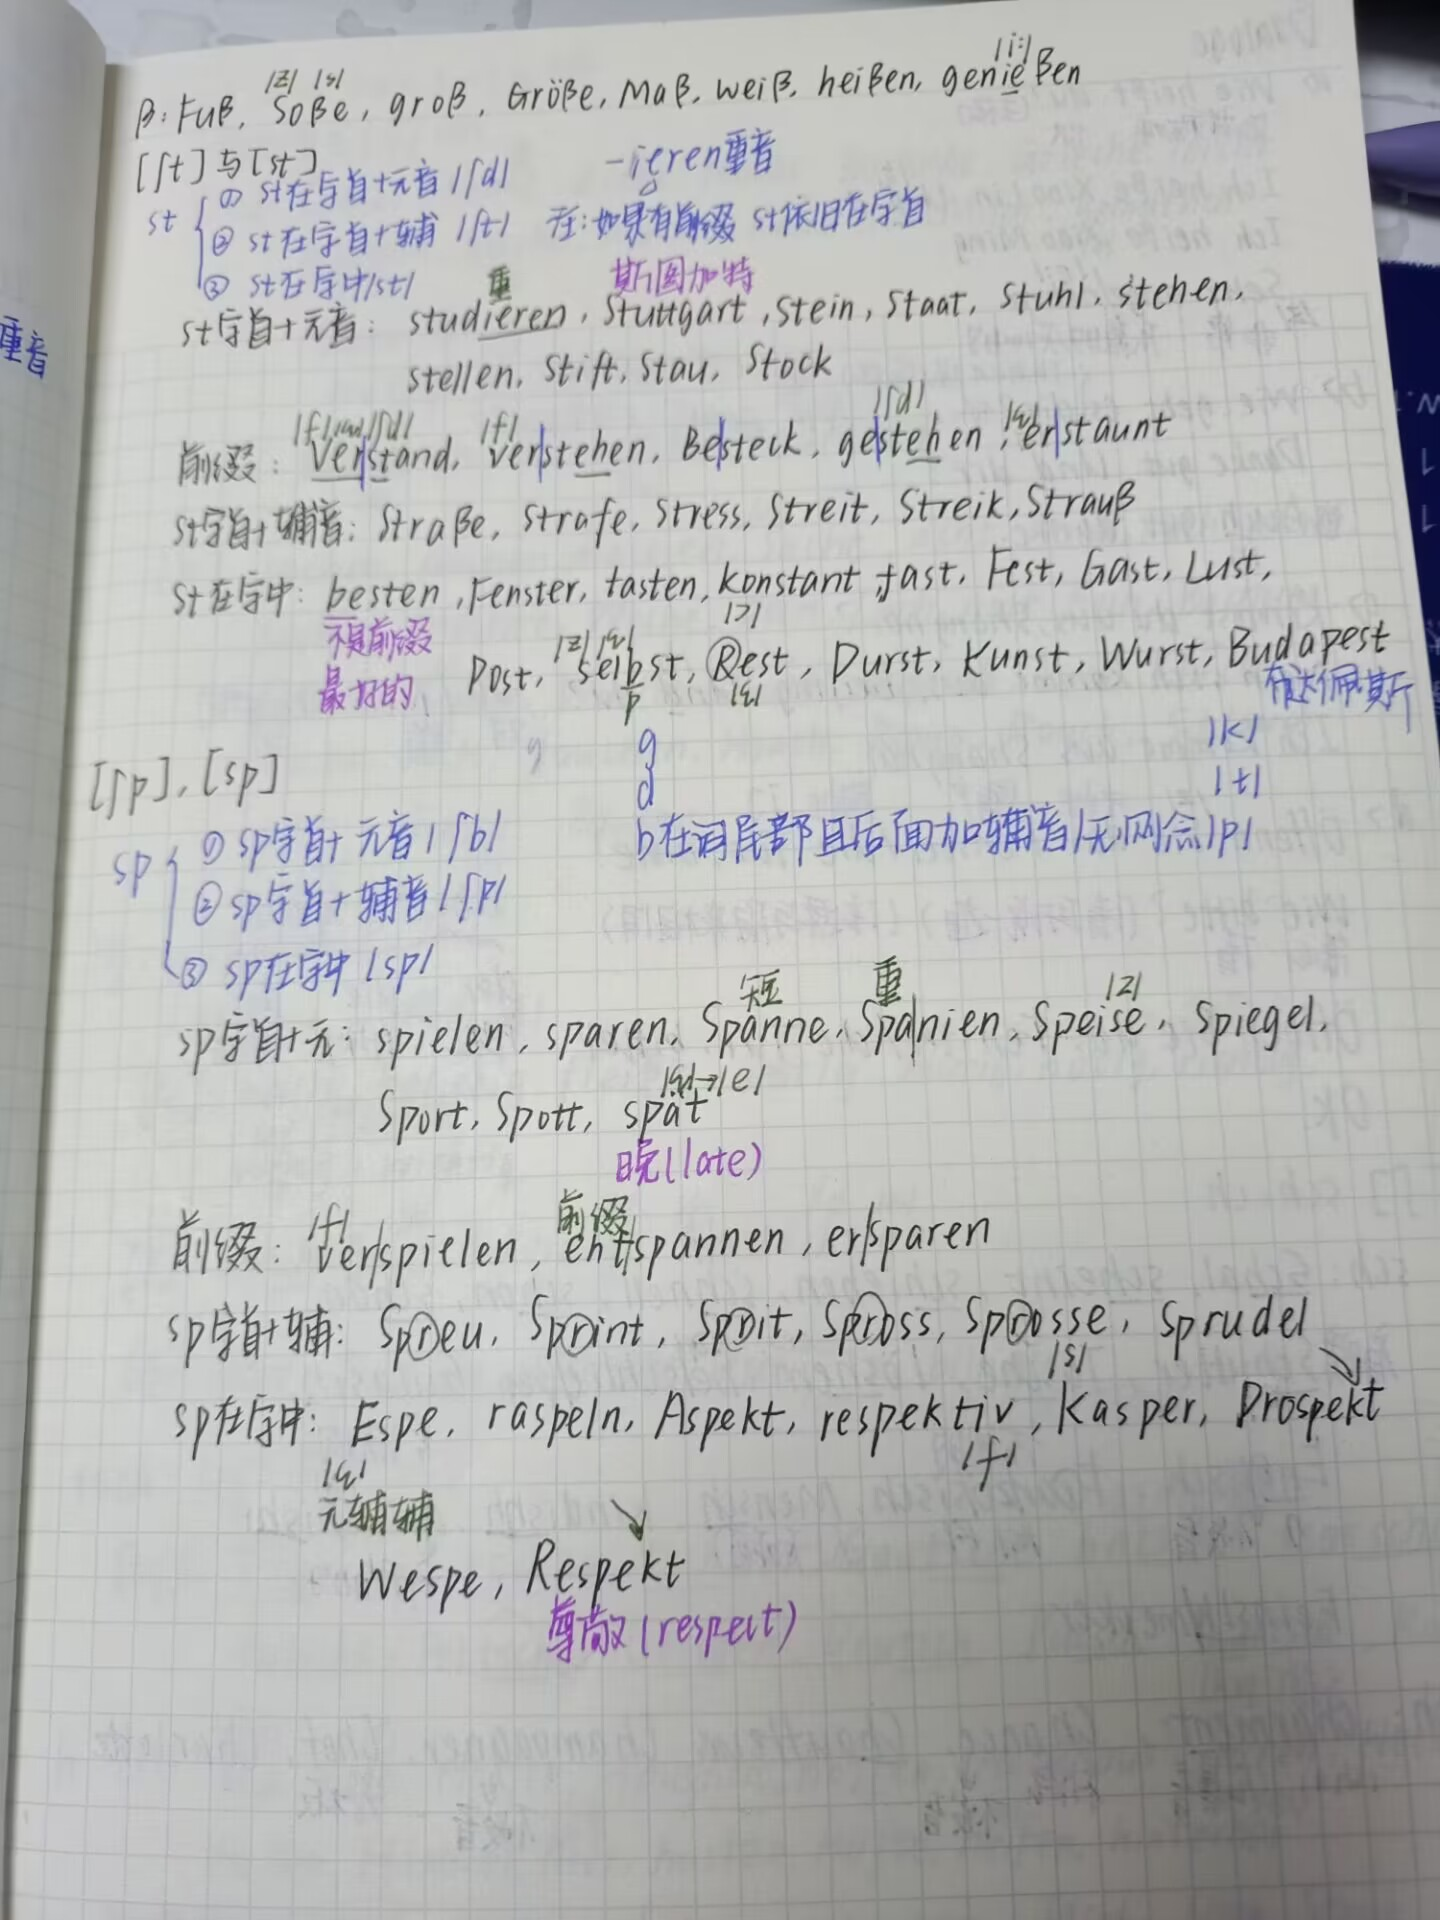 |z| |s| |i:|
ß: Fuß, Soße, groß, Größe, Maß, weiß, heißen, genießen
[ʃt]与[st] -ieren重音
st ① st在字首+元音 |ʃd|
② st在字首+辅 |ʃt| 注:如果有前缀 st依旧在字首
③ st在字中|st| 重 斯图加特
st字首+元音: studieren, Stuttgart, Stein, Staat, Stuhl, stehen,
stellen, Stift, Stau, Stock
重音
|f| |ʃd| |f| |ʃd| |ɛ|
前缀: Ver|stand, ver|stehen, Be|steck, ge|stehen, er|staunt
st字首+辅音: Straße, Strafe, Stress, Streit, Streik, Strauß
st在字中: besten, Fenster, tasten, konstant, fast, Fest, Gast, Lust,
不是前缀 |ɔ|
最好的 |z| |ɛ|
Post, selbst, Rest, Durst, Kunst, Wurst, Budapest
p |ɛ| 布达佩斯
g g |k|
[ʃp], [sp] d |t|
sp ① sp字首+元音 |ʃb| b在词尾部且后面加辅音/无, 则念|p|
② sp字首+辅音 |ʃp|
③ sp在字中 |sp|
短 重 |z|
sp字首+元: spielen, sparen, Spanne, Spa|nien, Speise, Spiegel,
|ɛ|→|e|
Sport, Spott, spät
晚(late)
|f| 前缀
前缀: ver|spielen, ent|spannen, er|sparen
sp字首+辅: Spreu, Sprint, Sprit, Spross, Sprosse, Sprudel
|s|
sp在字中: Espe, raspeln, Aspekt, respektiv, Kasper, Prospekt
|ɛ| |f|
元辅辅
Wespe, Respekt
尊敬(respect)